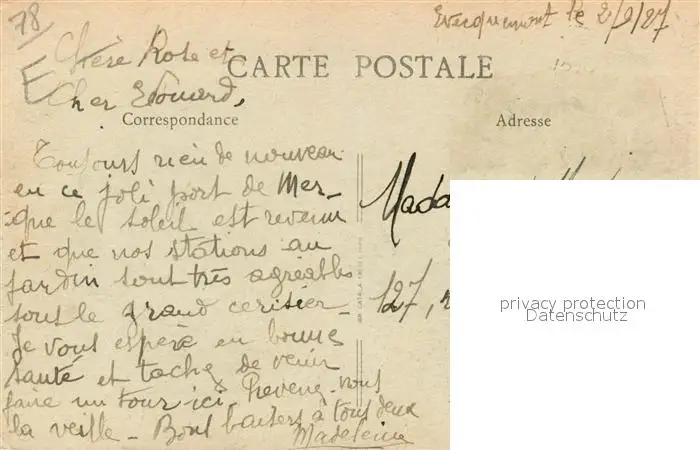 78
Evecquemont le 2/9/27
Chère Rose et
CARTE POSTALE
Cher Edouard,
Correspondance
Adresse
Toujours rien de nouveau
en ce joli port de Mer_
que le soleil est revenu
et que nos stations au
jardin sont très agréables
sous le grand cerisier_
Je vous espère en bonne
santé et tachez de venir
faire un tour ici. Prévenez-nous
la veille_ Bons baisers à tous deux
Madeleine
Mada
127,
privacy protection
Datenschutz